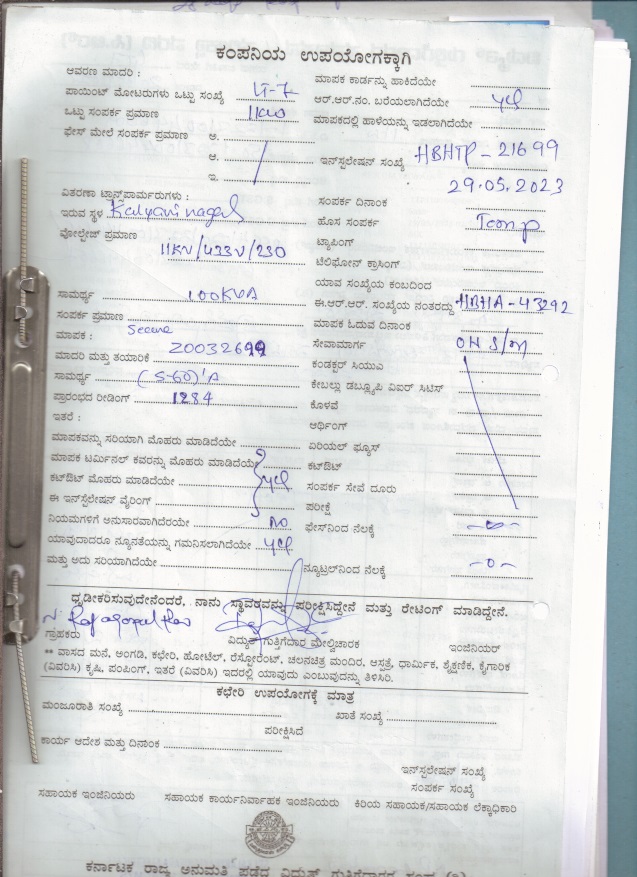 ಕಂಪನಿಯ ಉಪಯೋಗಕ್ಕಾಗಿ
ಆವರಣ ಮಾದರಿ :
ಪಾಯಿಂಟ್ ಮೋಟರುಗಳು ಒಟ್ಟು ಸಂಖ್ಯೆ LT-7
ಒಟ್ಟು ಸಂಪರ್ಕ ಪ್ರಮಾಣ 11KW
ಫೇಸ್ ಮೇಲೆ ಸಂಪರ್ಕ ಪ್ರಮಾಣ ಅ.
ಆ.
ಇ.
ವಿತರಣಾ ಟ್ರಾನ್ಸ್‌ಫಾರ್ಮರುಗಳು :
ಇರುವ ಸ್ಥಳ Kalyani nagar
ವೋಲ್ಟೇಜ್ ಪ್ರಮಾಣ
11KV/433V/230
ಸಾಮರ್ಥ್ಯ 100KVA
ಸಂಪರ್ಕ ಪ್ರಮಾಣ
ಮಾಪಕ : Secure
ಮಾದರಿ ಮತ್ತು ತಯಾರಿಕೆ
ಸಾಮರ್ಥ್ಯ (5-60)'A
ಪ್ರಾರಂಭದ ರೀಡಿಂಗ್ 1284
ಇತರೆ :
ಮಾಪಕವನ್ನು ಸರಿಯಾಗಿ ಮೊಹರು ಮಾಡಿದೆಯೇ
ಮಾಪಕ ಟರ್ಮಿನಲ್ ಕವರನ್ನು ಮೊಹರು ಮಾಡಿದೆಯೇ
ಕಟ್‌ಔಟ್ ಮೊಹರು ಮಾಡಿದೆಯೇ yes
ಈ ಇನ್‌ಸ್ಟಲೇಷನ್ ವೈರಿಂಗ್
ನಿಯಮಗಳಿಗೆ ಅನುಸಾರವಾಗಿದೆರಯೇ no
ಯಾವುದಾದರೂ ನ್ಯೂನತೆಯನ್ನು ಗಮನಿಸಲಾಗಿದೆಯೇ yes
ಮತ್ತು ಅದು ಸರಿಯಾಗಿದೆಯೇ
ಮಾಪಕ ಕಾರ್ಡನ್ನು ಹಾಕಿದೆಯೇ
ಆರ್.ಆರ್.ನಂ. ಬರೆಯಲಾಗಿದೆಯೇ yes
ಮಾಪಕದಲ್ಲಿ ಹಾಳೆಯನ್ನು ಇಡಲಾಗಿದೆಯೇ
ಇನ್‌ಸ್ಟಲೇಷನ್ ಸಂಖ್ಯೆ HBHTP-21699
29.05.2023
ಸಂಪರ್ಕ ದಿನಾಂಕ
ಹೊಸ ಸಂಪರ್ಕ Temp
ಟ್ಯಾಪಿಂಗ್
ಟೆಲಿಫೋನ್ ಕ್ರಾಸಿಂಗ್
ಯಾವ ಸಂಖ್ಯೆಯ ಕಂಬದಿಂದ
ಈ.ಆರ್.ಆರ್. ಸಂಖ್ಯೆಯ ನಂತರದ್ದು HBHA-43292
ಮಾಪಕ ಓದುವ ದಿನಾಂಕ
ಸೇವಾಮಾರ್ಗ OH S/M
ಕಂಡಕ್ಟರ್ ಸಿಯುಎ
ಕೇಬಲ್ಲು ಡಬ್ಲ್ಯೂಪಿ ವಿಐರ್ ಸಿಟಿಸ್
ಕೊಳವೆ
ಆರ್ಥಿಂಗ್
ಏರಿಯಲ್ ಫ್ಯೂಸ್
ಕಟ್‌ಔಟ್
ಸಂಪರ್ಕ ಸೇವೆ ದೂರು
ಪರೀಕ್ಷೆ
ಫೇಸ್‌ನಿಂದ ನೆಲಕ್ಕೆ
ನ್ಯೂಟ್ರಲ್‌ನಿಂದ ನೆಲಕ್ಕೆ -0-
ಧೃಡೀಕರಿಸುವುದೇನೆಂದರೆ, ನಾನು ಸ್ಥಾವರವನ್ನು ಪರೀಕ್ಷಿಸಿದ್ದೇನೆ ಮತ್ತು ರೇಟಿಂಗ್ ಮಾಡಿದ್ದೇನೆ.
N. Rajagopal Rao
ಗ್ರಾಹಕರು ವಿದ್ಯುತ್ ಗುತ್ತಿಗೆದಾರ ಮೇಲ್ವಿಚಾರಕ ಇಂಜಿನಿಯರ್
** ವಾಸದ ಮನೆ, ಅಂಗಡಿ, ಕಛೇರಿ, ಹೋಟೆಲ್, ರೆಸ್ಟೋರೆಂಟ್, ಚಲನಚಿತ್ರ ಮಂದಿರ, ಆಸ್ಪತ್ರೆ, ಧಾರ್ಮಿಕ, ಶೈಕ್ಷಣಿಕ, ಕೈಗಾರಿಕ
(ವಿವರಿಸಿ) ಕೃಷಿ, ಪಂಪಿಂಗ್, ಇತರೆ (ವಿವರಿಸಿ) ಇದರಲ್ಲಿ ಯಾವುದು ಎಂಬುವುದನ್ನು ತಿಳಿಸಿರಿ.
ಕಛೇರಿ ಉಪಯೋಗಕ್ಕೆ ಮಾತ್ರ
ಮಂಜೂರಾತಿ ಸಂಖ್ಯೆ ಖಾತೆ ಸಂಖ್ಯೆ
ಪರೀಕ್ಷಿಸಿದೆ
ಕಾರ್ಯ ಆದೇಶ ಮತ್ತು ದಿನಾಂಕ
ಇನ್‌ಸ್ಟಲೇಷನ್ ಸಂಖ್ಯೆ
ಸಂಪರ್ಕ ಸಂಖ್ಯೆ
ಸಹಾಯಕ ಇಂಜಿನಿಯರು ಸಹಾಯಕ ಕಾರ್ಯನಿರ್ವಾಹಕ ಇಂಜಿನಿಯರು ಕಿರಿಯ ಸಹಾಯಕ/ಸಹಾಯಕ ಲೆಕ್ಕಾಧಿಕಾರಿ
ಕರ್ನಾಟಕ ರಾಜ್ಯ ಅನುಮತಿ ಪಡೆದ ವಿದ್ಯುತ್ ಗುತ್ತಿಗೆದಾರರ ಸಂಘ